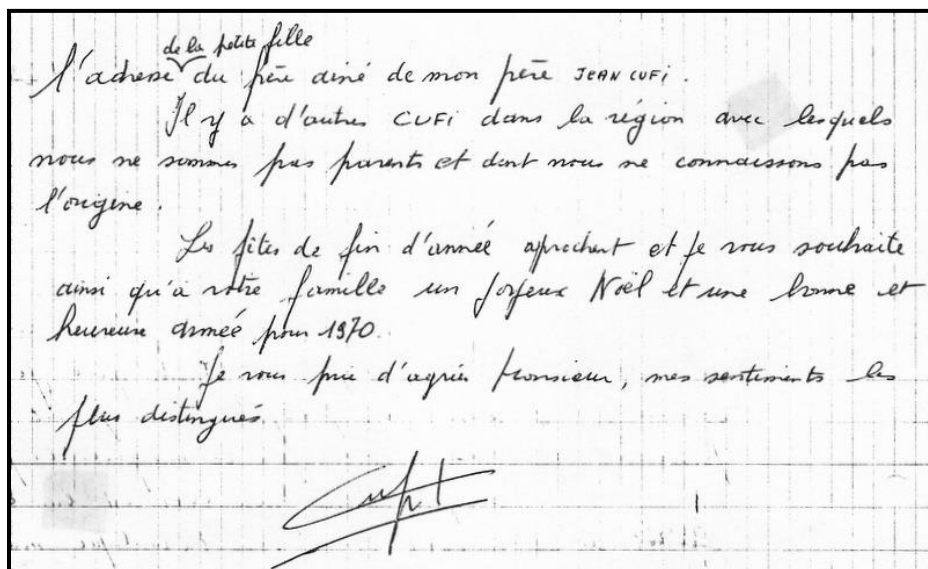 de la petite fille
l'adresse du frère ainé de mon père JEAN CUFI.
Il y a d'autres CUFI dans la région avec lesquels
nous ne sommes pas parents et dont nous ne connaissons pas
l'origine.
Les fêtes de fin d'année aprochent et je vous souhaite
ainsi qu'a votre famille un joyeux Noël et une bonne et
heureuse année pour 1970.
Je vous prie d'agréer Monsieur, mes sentiments les
plus distingués.